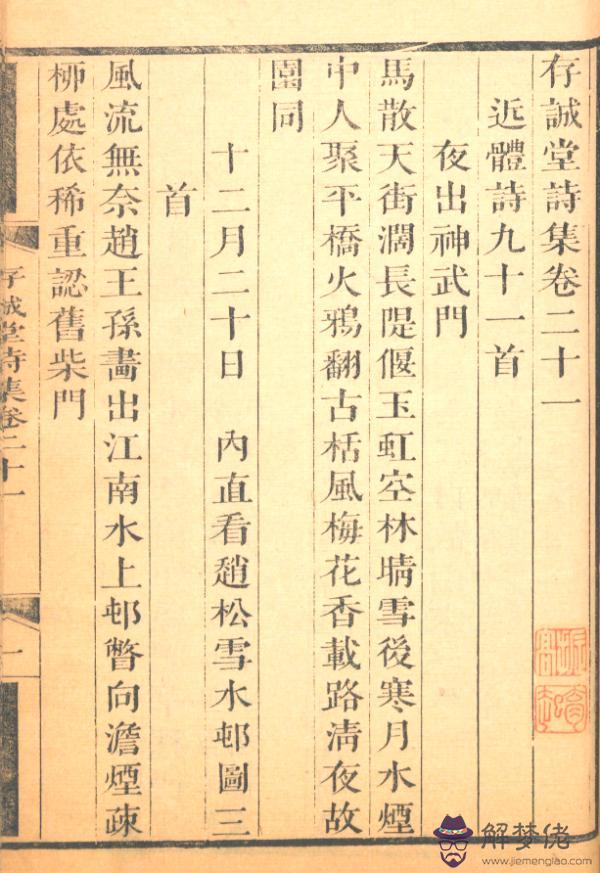 存誠堂詩集卷二十一
近體詩九十一首
夜出神武門
馬散天街濶長隄偃玉虹空林晴雪後寒月水煙
中人聚平橋火鴉翻古栝風梅花香載路淸夜故
園同
十二月二十日 內直看趙松雪水邨圖三
首
風流無奈趙王孫畵出江南水上邨瞥向澹煙疎
栁處依稀重認舊柴門
存誠堂詩集卷二十一
一
解梦佬
www.jiemenglao.com